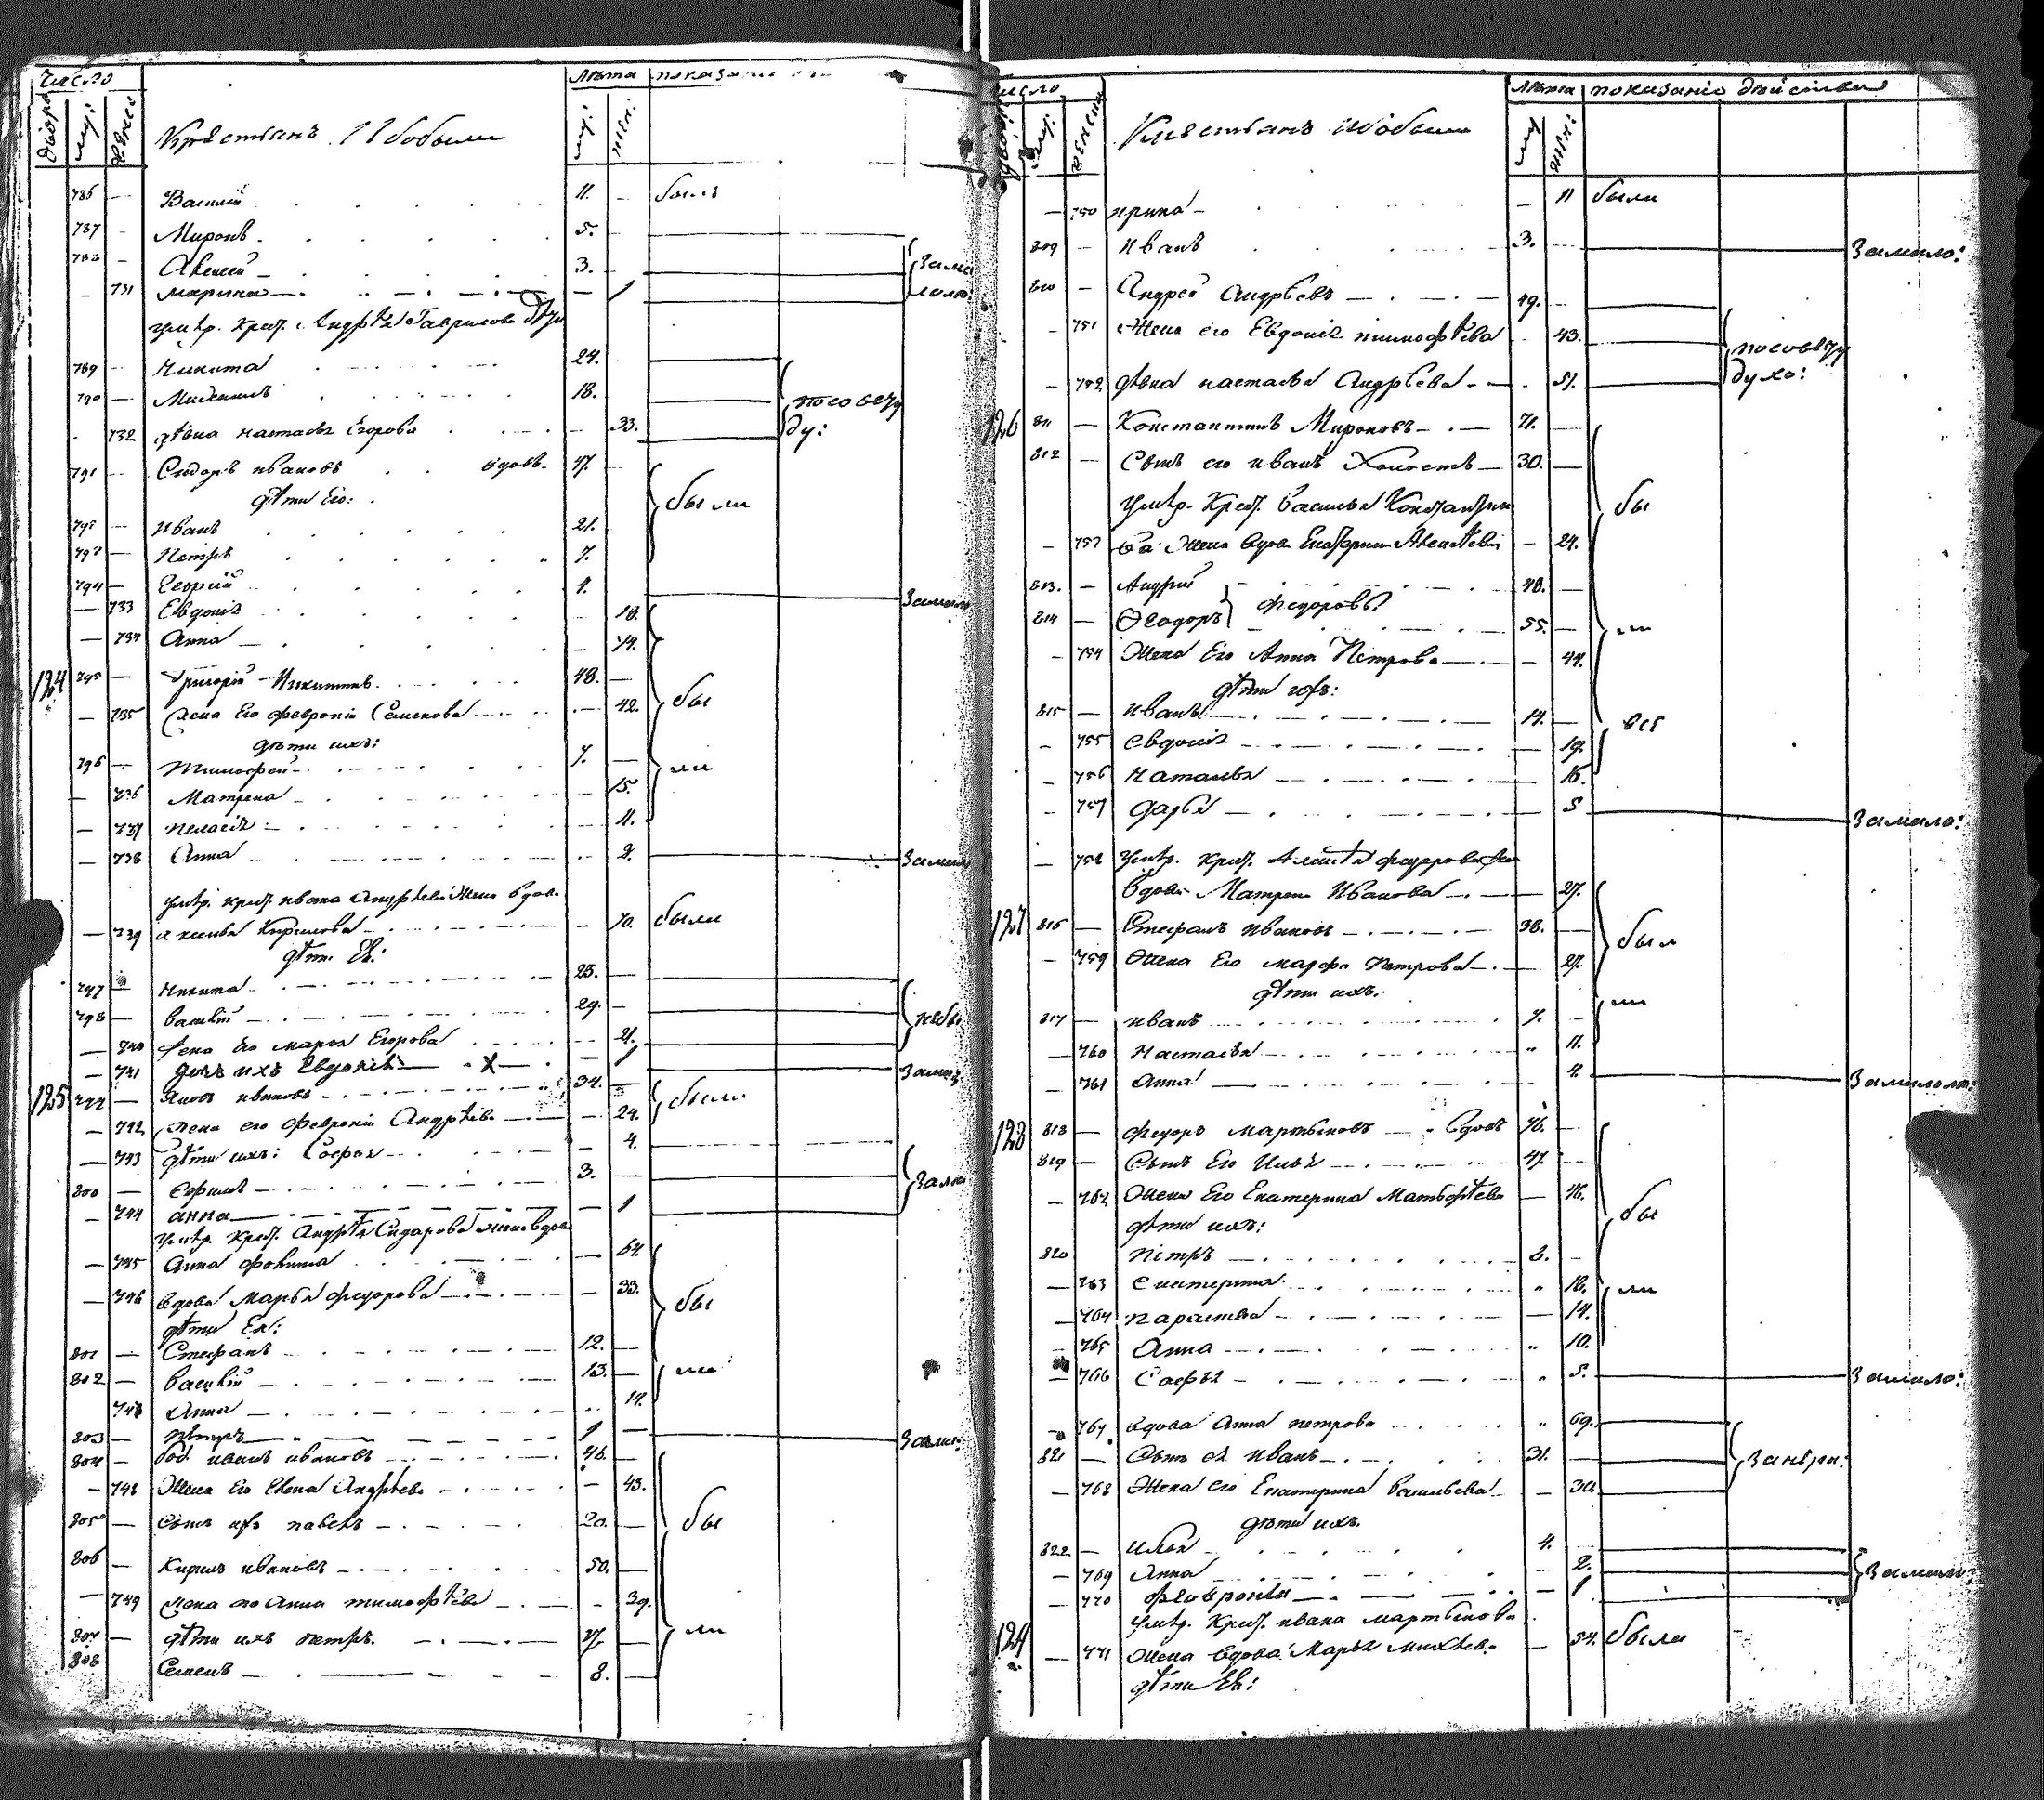 число лѣта показаніе
двор муж: женс Крестьянъ И бобыли муж: жен:
786 — Василій 11. — былъ
787 — Миронъ 5. —
788 — Алексей 3. —
— 731 марина — 1 } Замало:
умер. крест. Андрѣя Гаврилова дѣти
789 — Никита 24.
790 — Михаилъ 18. } по совѣту ду:
— 732 дѣвка настасья Егорова — 33.
791 — Сидоръ ивановъ вдовъ 47. —
дѣти его: были
792 — Иванъ 21.
793 — Петръ 7.
794 — Георгий 1. Замало
— 733 Евдокія 18.
— 734 Анна — 14.
124 795 — Григорий Никитинъ 48. —
— 735 Жена Его февронія Семенова — 42. бы
дѣти ихъ:
796 — тимофей 7. —
— 736 Матрена — 15. ли
— 737 пелагія — 11.
— 738 Анна — 2. Замало
умер. крест. ивана Андрѣева Жена вдова
— 739 аксинья Кирилова — 70. были
дѣти Ея:
797 — Никита 23. —
798 — василій 29. —
— 740 жена Его марья Егорова 21. } небы
— 741 дочь ихъ Евдокія — X — 1 Замало
125 799 — Яковъ ивановъ 34. —
— 742 жена его Февронія Андрѣева — 24. были
— 743 дѣти ихъ: Софья — 4.
800 — Ефимъ 3. — } Зама
— 744 анна — 1
умер. Крест. Андрѣя Сидарова жена вдова
— 745 Анна фокина — 64.
— 746 вдова Марья федорова — 33. бы
дѣти Ея:
801 — Стефанъ 12. —
802 — василій — 13. — ли
747 Анна — 14.
803 — петръ 1 — Замал:
804 — боб. иванъ ивановъ 46. —
— 748 Жена Его Елена Андрѣева — 43.
805 — сынъ ихъ павелъ — 20. — бы
806 — Кирилъ ивановъ 50. —
— 749 жена его Анна тимофѣева — 39.
807 — дѣти ихъ петръ. 27. — ли
808 Семенъ — 8. —
число лѣта показаніе дѣйства
муж: женски Крестьянъ И бобыли муж жен:
— 750 ирина — — 11 были
809 — Иванъ 3. — Замало:
810 — Андрей Андрѣевъ — 49. —
— 751 Жена его Евдокія тимофѣева 43. } по совѣту духо:
— 752 дѣвка настасья Андрѣева 51.
126 811 — Константинъ Мироновъ — 71. —
812 — Сынъ его иванъ Холостъ — 30. — бы
умер. Крест. василья Константин
— 753 ва Жена вдова Екатерина Алексѣева — 24.
813. — Андрей } федоровы 48. —
814 — Феодоръ 55. — ли
— 754 Жена Его Анна Петрова — 44.
дѣти ихъ:
815 — иванъ 14. — всѣ
— 755 евдокія — 19.
— 756 наталья — 16.
— 757 дарья — 5 Замало:
— 758 умер. крест. Алексѣя федорова жен
вдова Матрена Иванова — 27.
127 816 — Стефанъ ивановъ 38. — был
— 759 Жена Его марфа петрова — 27.
дѣти ихъ. ли
817 — иванъ 7. —
— 760 Настасья 11.
— 761 Анна 4. Замало:
128 818 — федоръ мартыновъ вдовъ 76. —
819 — Сынъ Его Илья 47. —
— 762 Жена Его Екатерина Матвѣева — 46. бы
дѣти ихъ:
820 Петръ 8. —
— 763 екатерина 18. ли
— 764 параскева — 14.
— 765 Анна 10.
— 766 Софья — 5. Замало:
— 767 вдова Анна петрова 69.
821 — Сынъ ея иванъ 31. — } Занебри:
— 768 Жена его Екатерина васильева — 30.
дѣти ихъ.
822 — илья 4.
— 769 Анна 2. } Замало:
— 770 февронья — 1
умер. Крест. ивана мартынова
129 — 771 Жена вдова Марья михѣева — 54. была
дѣти Ея: